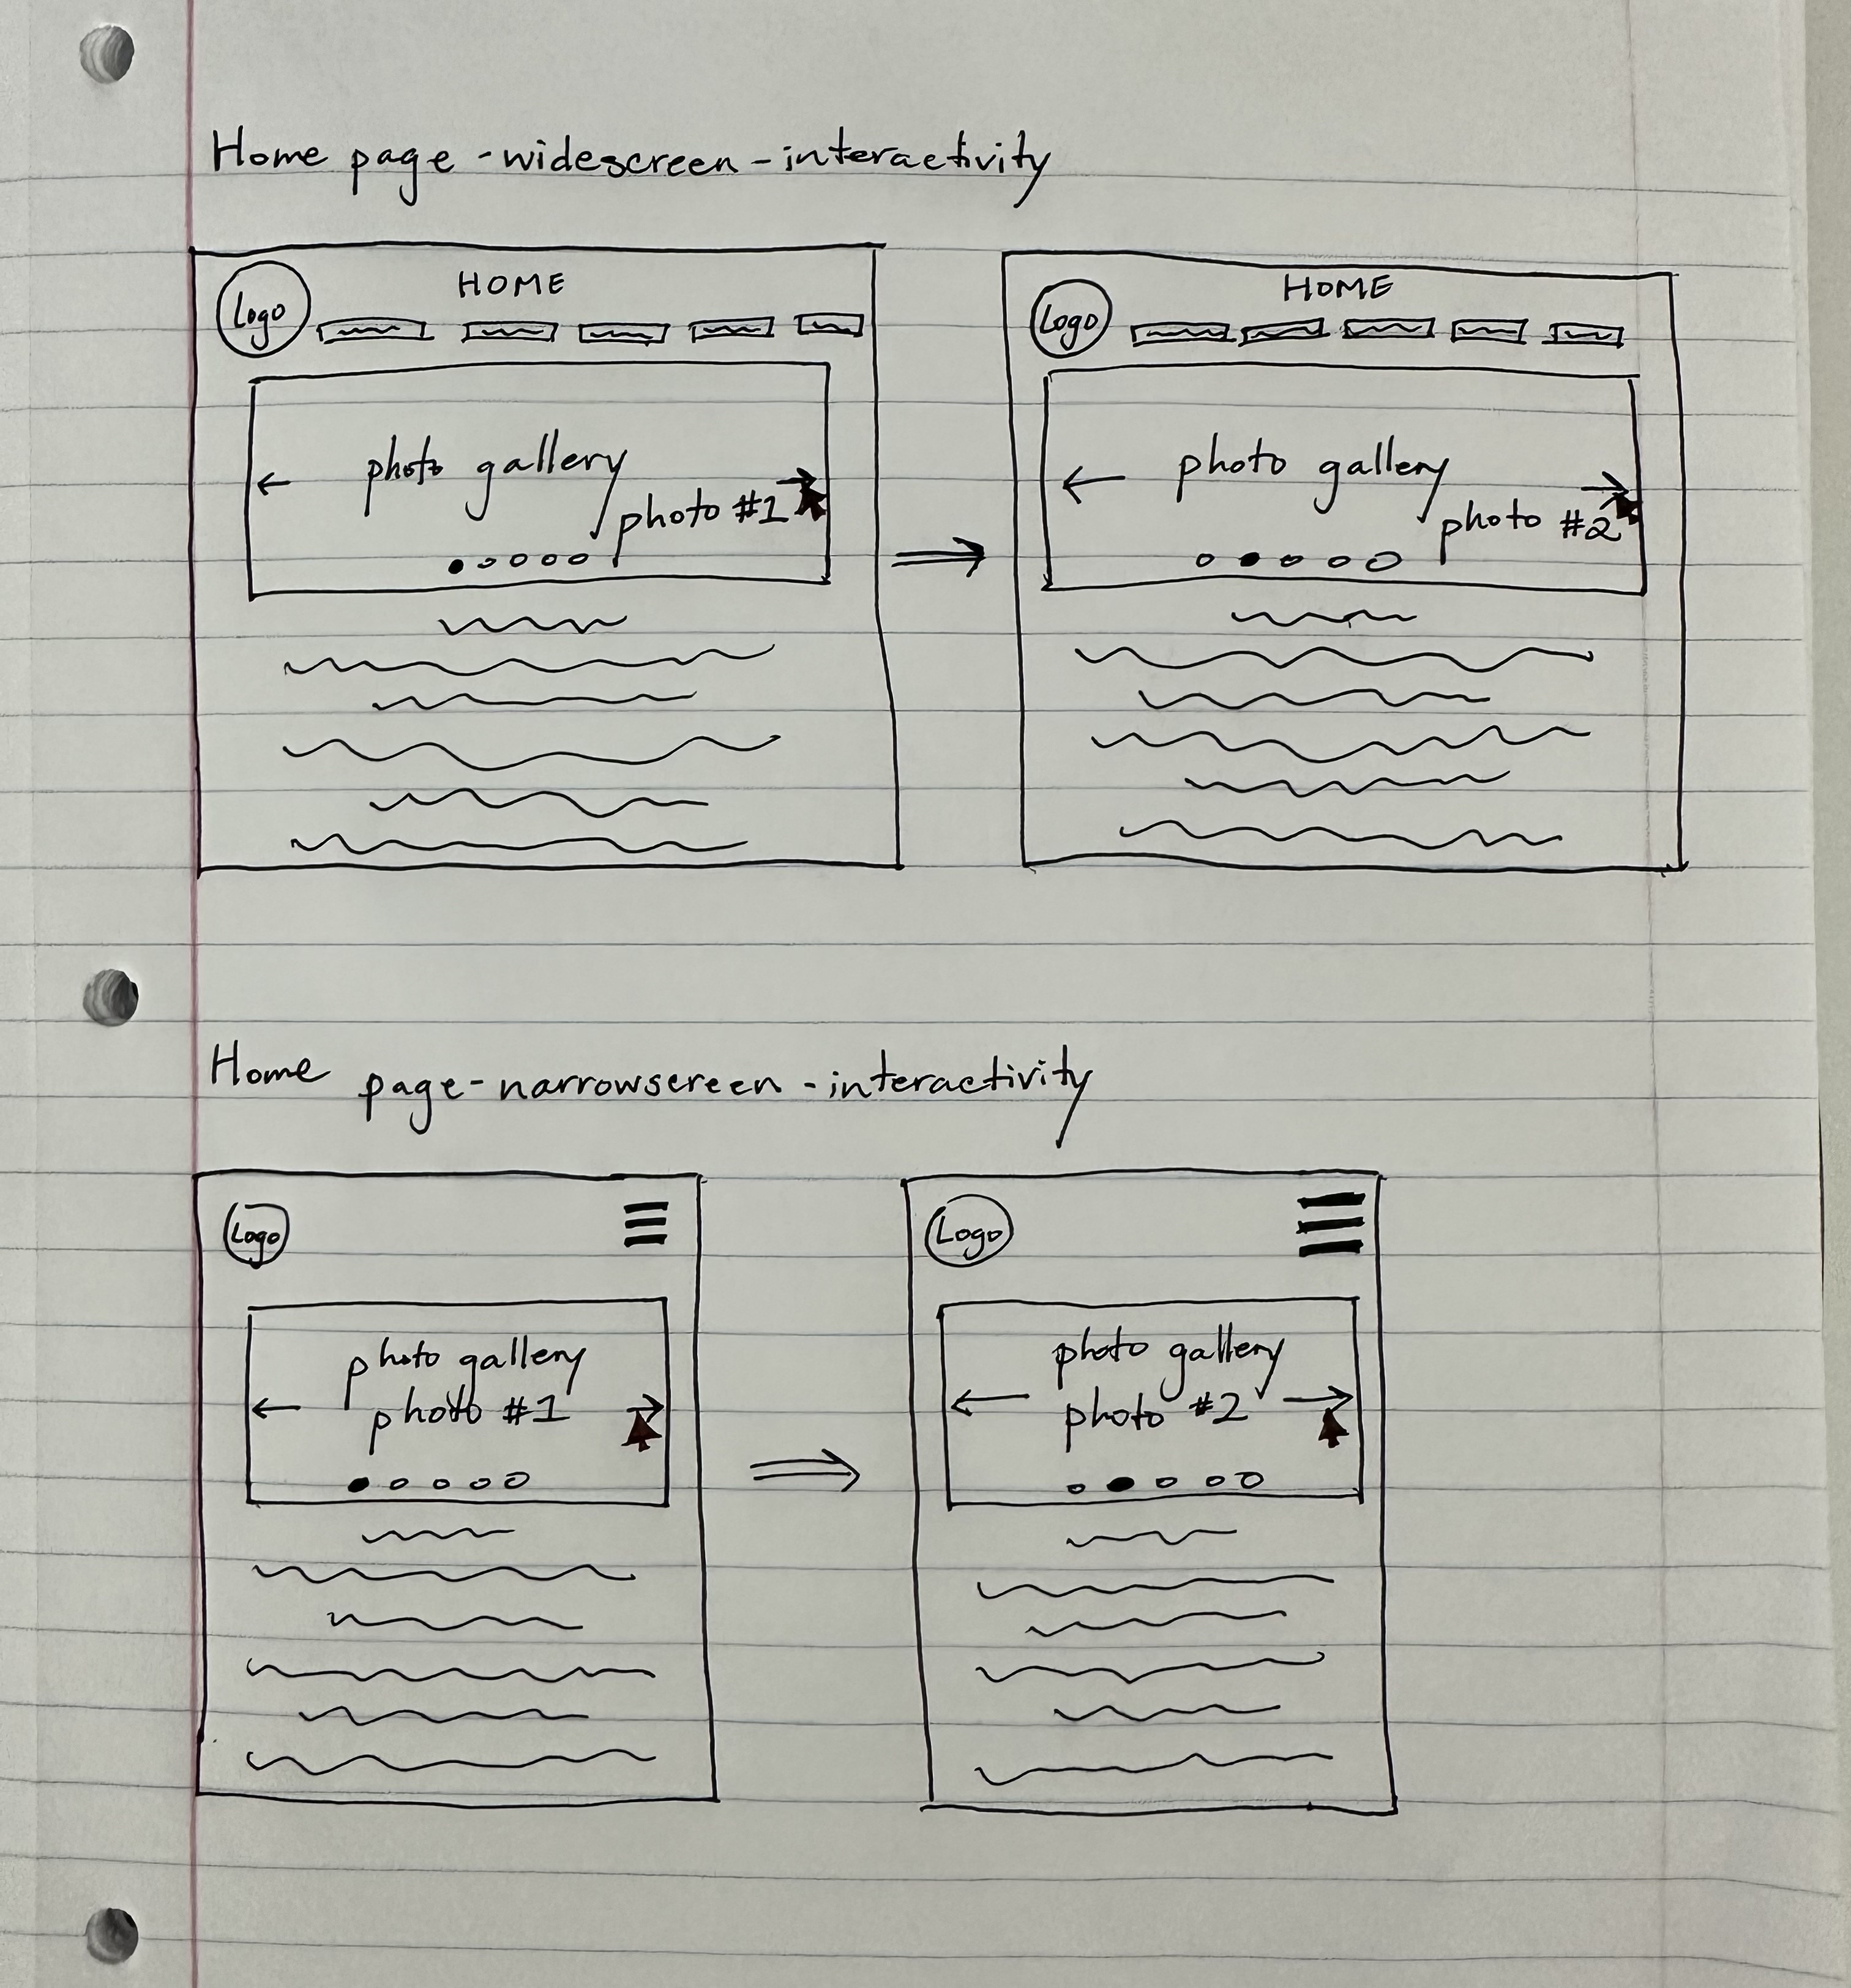 Home page - widescreen - interactivity
HOME
Logo
photo gallery
photo #1
HOME
Logo
photo gallery
photo #2
Home page - narrowscreen - interactivity
Logo
photo gallery
photo #1
Logo
photo gallery
photo #2